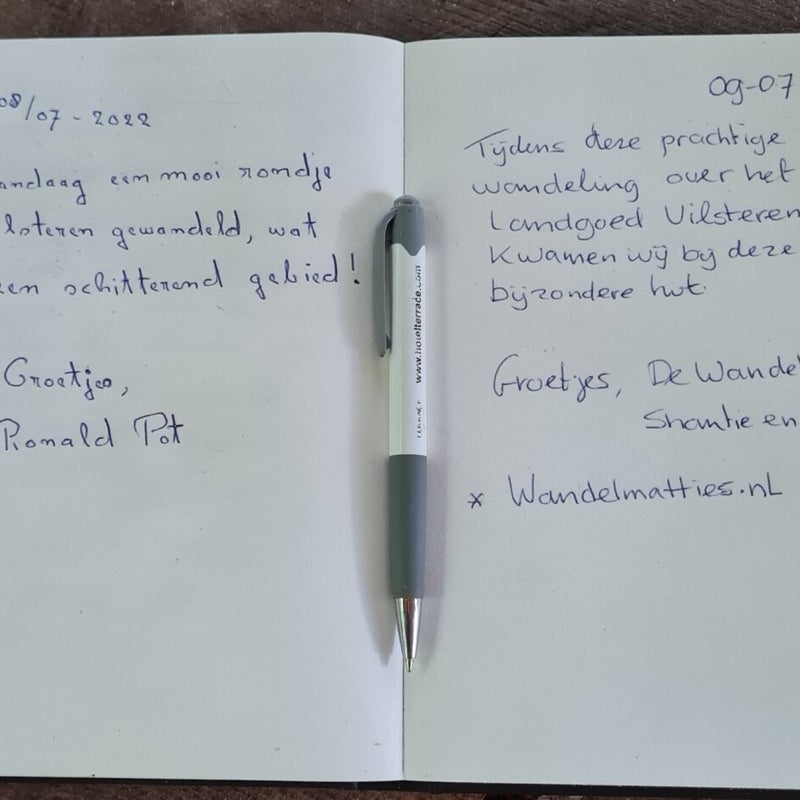 08/07-2022
andaag een mooi rondje
lsteren gewandeld, wat
een schitterend gebied!
Groetjes,
Ronald Pot
www.hotelterrace.com
09-07
Tijdens deze prachtige
wandeling over het
Landgoed Vilsteren
Kwamen wij bij deze
bijzondere hut.
Groetjes, De Wandel
Shantie en
* Wandelmatties.nl